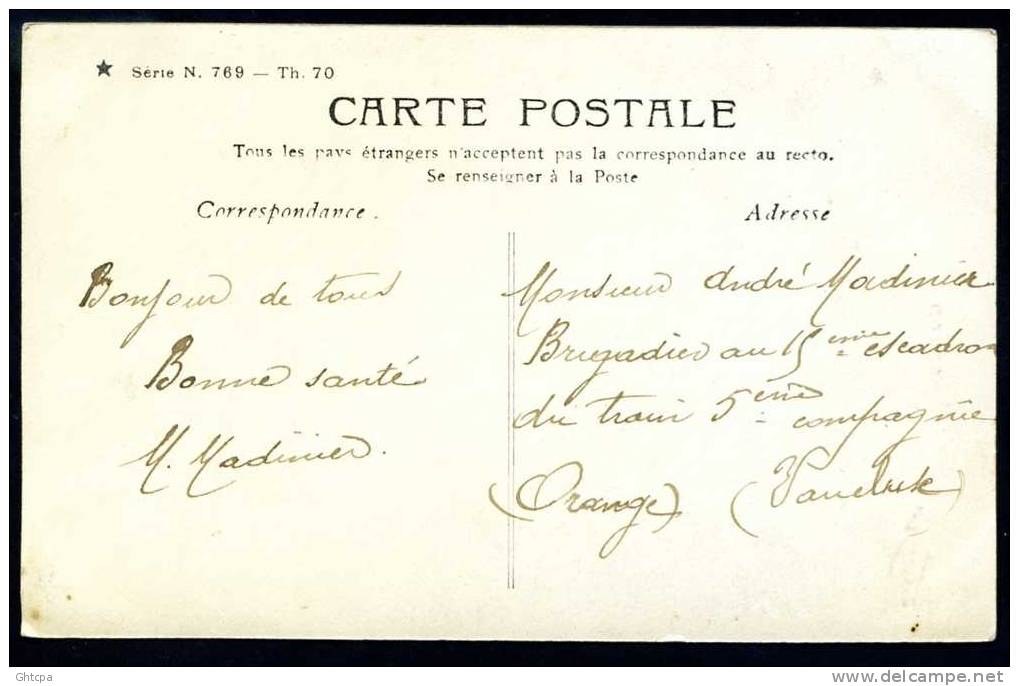 ★ Série N. 769 — Th. 70
CARTE POSTALE
Tous les pays étrangers n'acceptent pas la correspondance au recto.
Se renseigner à la Poste
Correspondance.
Adresse
Bonjour de tous
Bonne santé
M. Madinier.
Monsieur André Madinier
Brigadier au 15ème escadron
du train 5ème compagnie
(Orange) (Vaucluse)
Ghtcpa
www.delcampe.net